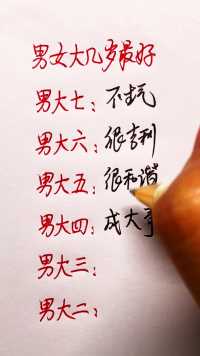 男女大几岁最好
男大七：不生气
男大六：很吉利
男大五：很和谐
男大四：成大事
男大三：
男大二：